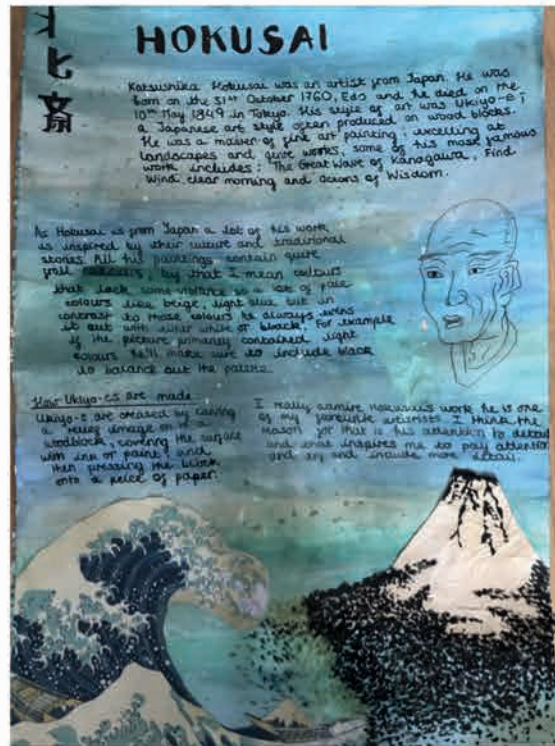 北斎
HOKUSAI
Katsushika Hokusai was an artist from Japan. He was
born on the 31st October 1760, Edo and he died on the
10th May 1849 in Tokyo. His style of art was Ukiyo-e;
a Japanese art style often produced on wood blocks.
He was a master of fine art painting, excelling at
landscapes and quite works, some of his most famous
work includes: The Great Wave of Kanagawa, Find
Wind, clear morning and Oceans of Wisdom.
As Hokusai is from Japan a lot of his work
is inspired by their culture and traditional
stories. All his paintings contain quite
frail colours, by that I mean colours
that lack some vibrance so a lot of pale
colours like beige, light blue but in
contrast to those colours he always evens
it out with either white or black. For example
if the picture primarily contained light
colours he'll make sure to include black
to balance out the palette.
How Ukiyo-es are made
Ukiyo-e are created by carving
a relief image onto a
woodblock, covering the surface
with ink or paint, and
then pressing the block
onto a peice of paper.
I really admire Hokusais work he is one
of my favourite artists. I think the
reason for that is his attention to detail
and what inspires me to pay attention
and try and include more detail.